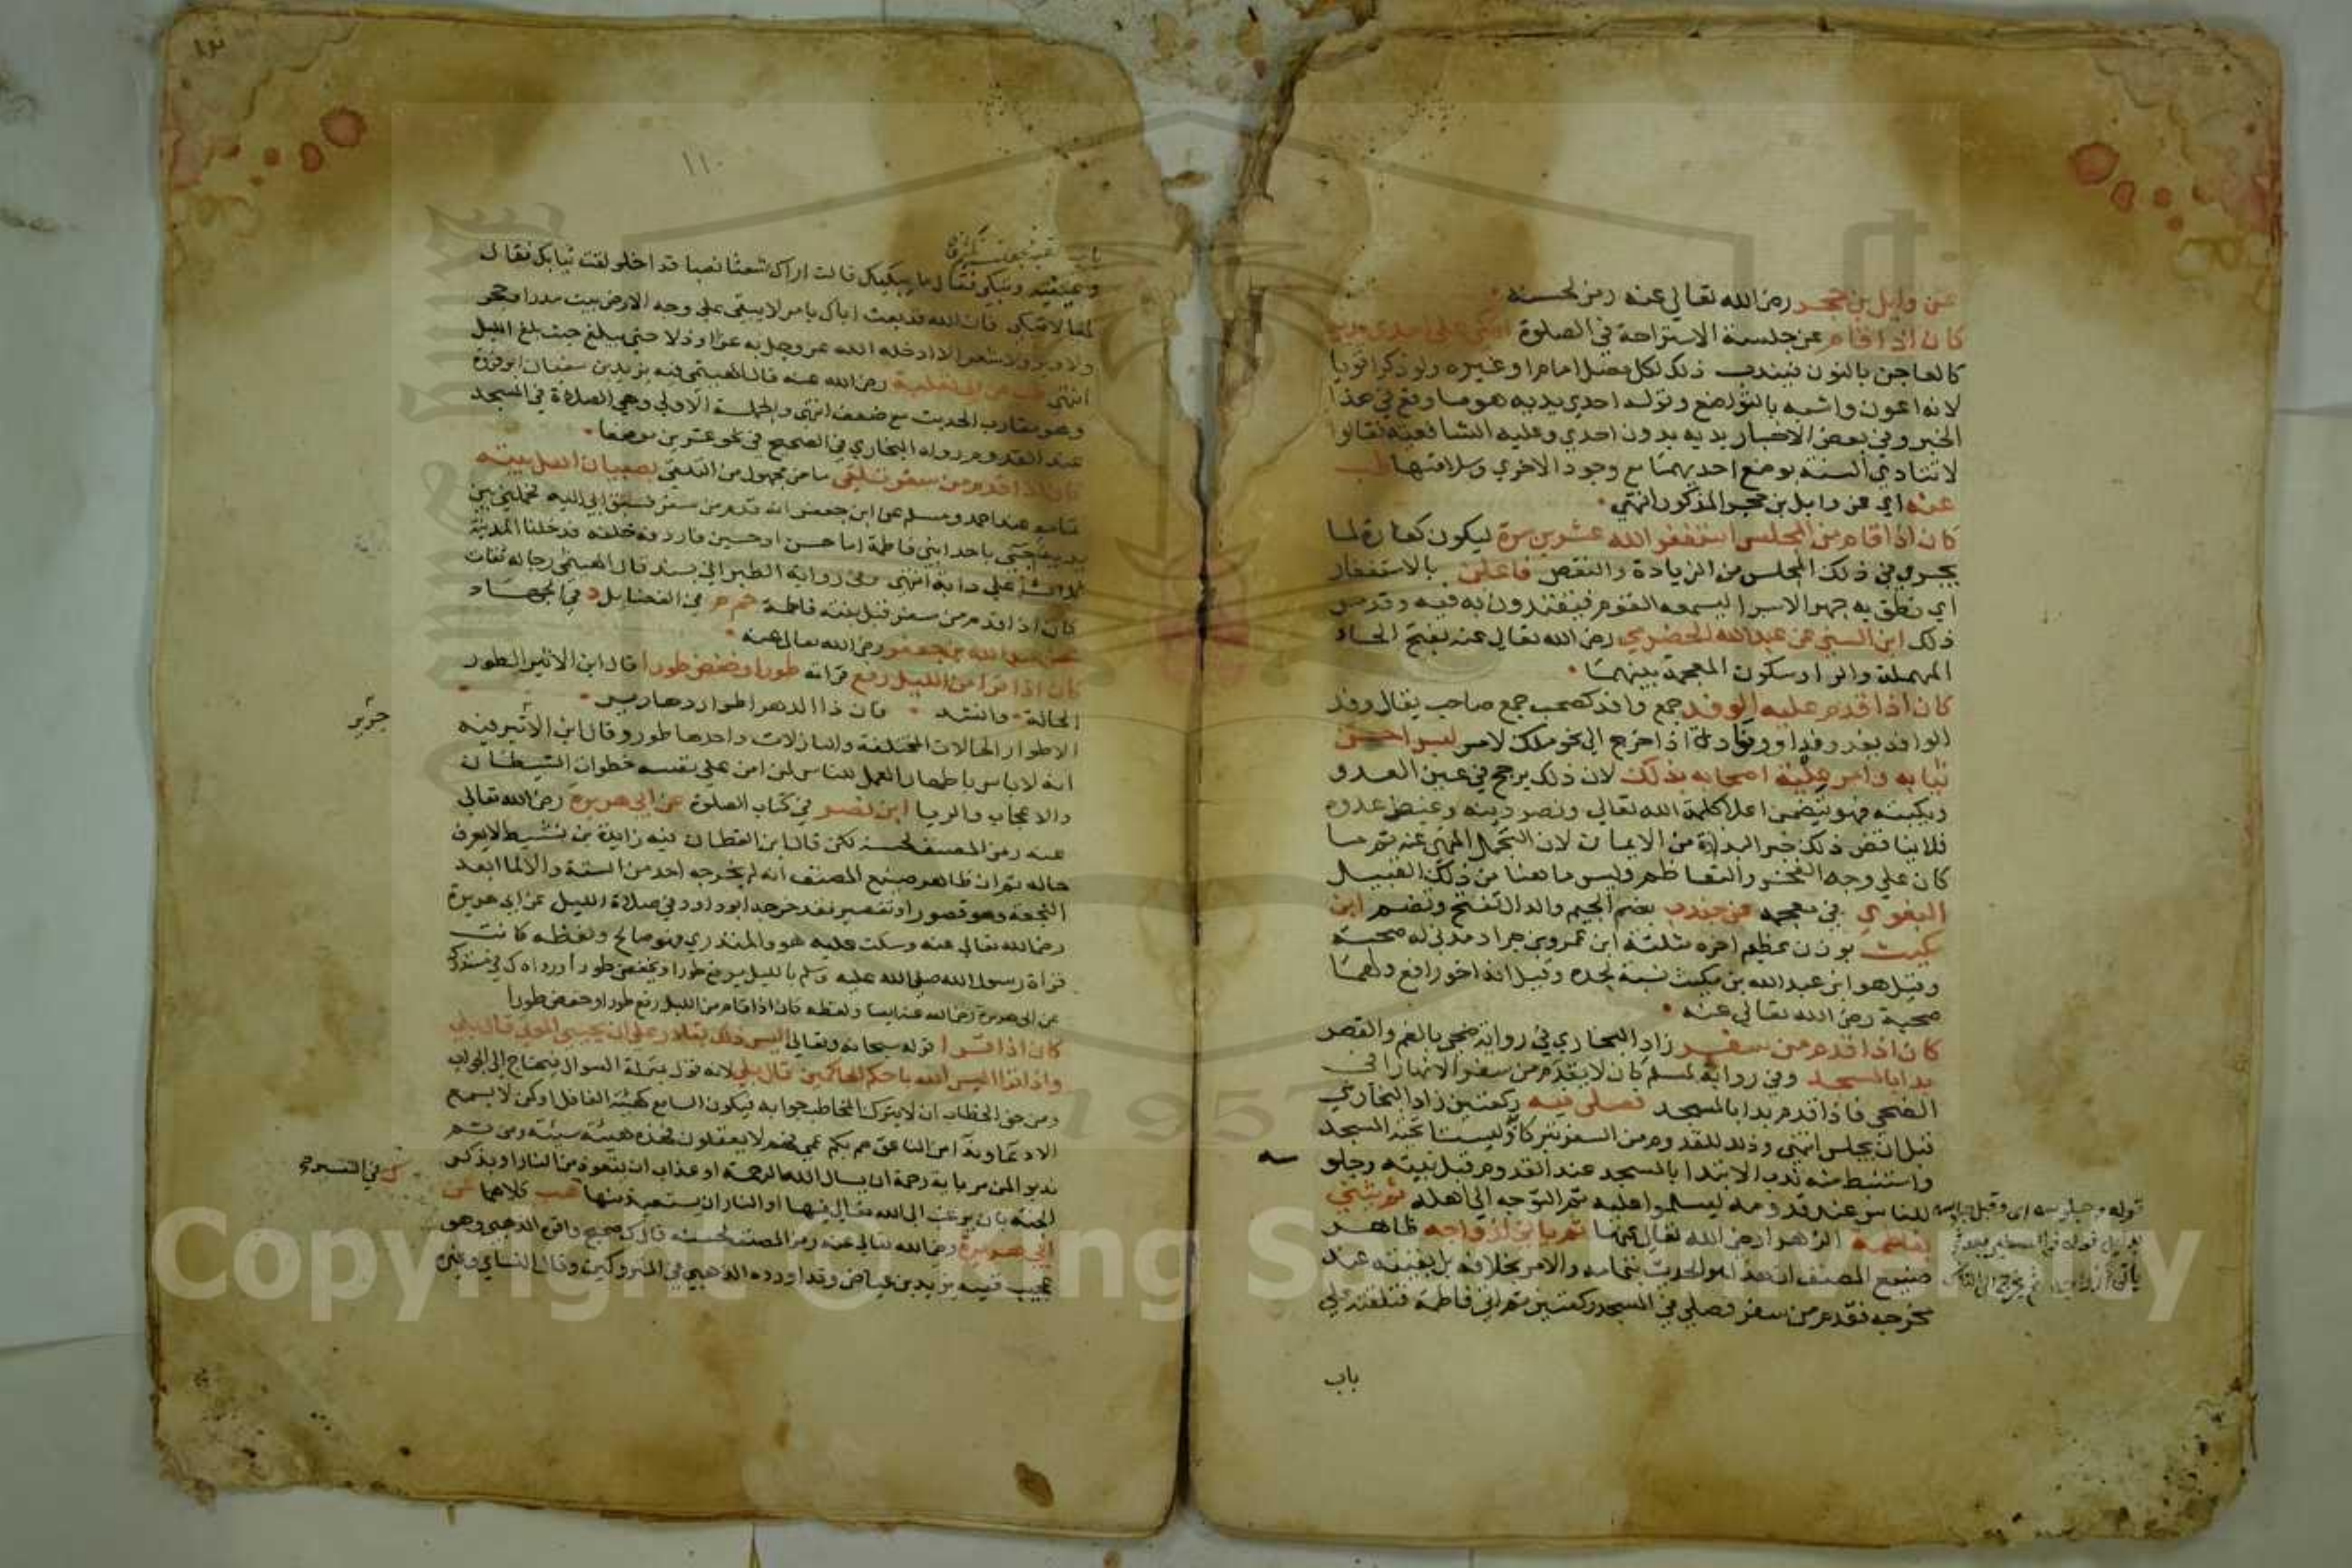 عن وايل بن حجر رضي الله تعالي عنه رمز لحسنه
كان اذا قام عن جلسة الاستراحة في الصلوة اتكي علي احدي يديه
كالعاجن بالنون فيندب ذلك لكل مصل اماما او غيره ولو ذكرا قويا
لانه اعون واشبه بالتواضع وقوله احدي يديه هو ما وقع في هذا
الخبر وفي بعض الاخبار يديه بدون احدي وعليه الشافعية فقالوا
لا تتادي السنة بوضع احديهما مع وجود الاخري وسلامتها طب
عنه اي عن وايل بن حجر المذكور انتهي
كان اذا قام من المجلس استغفر الله عشرين مرة ليكون كفارة لما
يجري في ذلك المجلس من الزيادة والنقص فاعلن بالاستغفار
اي نطق به جهرا لاسرا ليسمعه القوم فيقتدون به فيه وقد مر
ذلك ابن السني عن عبدالله الحضرمي رضي الله تعالي عنه بفتح الحاء
المهملة والراء وسكون المعجمة بينهما
كان اذا قدم عليه الوفد جمع وافد كصحب جمع صاحب يقال وفد
الوافد يفد وفدا ووفادة اذا خرج الي نحو ملك لامر لبس احسن
ثيابه وامر علية اصحابه بذلك لان ذلك يرجح في عين العدو
ويكبته فهو يتضمن اعلا كلمة الله تعالي ونصر دينه وغيظ عدوه
فلا يناقض ذلك خبر البذاذة من الايمان لان التجمل المنهي عنه ثم ما
كان علي وجه الفخر والتعاظم وليس ما هنا من ذلك القبيل
البغوي في معجمه عن جندب بضم الجيم والدال تفتح وتضم ابن
مكيث بوزن عظيم اخره مثلثة ابن عمرو بن جراد مدني له صحبة
وقيل هو ابن عبدالله بن مكيث نسبة لجده وقيل انه اخو رافع ولهما
صحبة رضي الله تعالي عنه
كان اذا قدم من سفر زاد البخاري في رواية ضحي بالضم والقصر
بدا بالمسجد وفي رواية لمسلم كان لا يقدم من سفر الا نهارا في
الضحي فاذا قدم بدا بالمسجد فصلي فيه ركعتين زاد البخاري
قبل ان يجلس انتهي وذلك للقدوم من السفر تبركا وليستا تحية المسجد
واستنبط منه ندب الابتدا بالمسجد عند القدوم قبل بيته وجلو سه
للناس عند قدومه ليسلموا عليه ثم التوجه الي اهله ثم يثني
بفاطمة الزهرا رضي الله تعالي عنها ثم ياتي ازواجه ظاهر
صنيع المصنف ان هذا هو الحديث بتمامه والامر بخلافه بل بقيته عند
مخرجه فقدم من سفر فصلي في المسجد ركعتين ثم اتي فاطمة فتلقته علي
قوله وجلوسه اي وقبل جلوسه
باب
١١٠
باب
وعينيه وتبكي فقال ما يبكيك قالت اراك شعثا نصبا قد اخلولقت ثيابك فقال
لها لا تبكي فان الله قد بعث اباك بامر لا يبقي علي وجه الارض بيت مدر او حجر
ولا وبر ولا شعر الا ادخله الله عز وجل به عزا او ذلا حتي يبلغ حيث بلغ الليل
انتهي طب عن ابي ثعلبة رضي الله عنه قال الهيتمي فيه يزيد بن سفان ابو فروة
وهو مقارب الحديث مع ضعف انتهي والجملة الاولي وهي الصلاة في المسجد
عند القدوم رواه البخاري في الصحيح في نحو عشرين موضعا
كان اذا قدم من سفر تلقي ماض مجهول من التلقي بصبيان اهل بيته
تمامه عند احمد ومسلم عن ابن جعفر انه قدم من سفر فسبق بي اليه فحملني بين
يديه فجئي باحد ابني فاطمة اما حسن او حسين فاردفه خلفه فدخلنا المدينة
ثلاثة علي دابة انتهي وفي رواية الطبراني بسند قال الهيتمي رجاله ثقات
كان اذا قدم من سفر قبل بنته فاطمة حم م في الفضايل د في الجهاد
عن عبدالله بن جعفر رضي الله تعالي عنه
كان اذا قرا من الليل رفع قراته طورا وخفض طورا قال ابن الاثير الطور
الحالة وانشد فان ذا الدهر اطوار دهارير
الاطوار الحالات المختلفة والنازلات واحدها طور وقال ابن الاثير فيه
جرير
انه لا باس باظهار العمل للناس لمن امن علي نفسه خطوات الشيطان
والاعجاب والريا ابن نصر في كتاب الصلوة عن ابي هريرة رضي الله تعالي
عنه رمز المصنف لحسنه لكن قال ابن القطان فيه زايدة بن نشيط لا يعرف
حاله ثم ان ظاهر صنيع المصنف انه لم يخرجه احد من الستة والا لما ابعد
النجعة وهو قصور او تقصير فقد خرجه ابو داود في صلاة الليل عن ابي هريرة
رضي الله تعالي عنه وسكت عليه هو والمنذري فهو صالح ولفظه كانت
قراة رسول الله صلي الله عليه وسلم بالليل يرفع طورا ويخفض طورا ورواه ك في مستدركه
عن ابي هريرة رضي الله عنه ايضا ولفظه كان اذا قام من الليل رفع طورا وخفض طورا
كان اذا قرا قوله سبحانه وتعالي اليس ذلك بقادر علي ان يحيي الموتي قال بلي
واذا قرا اليس الله باحكم الحاكمين قال بلي لانه قول بمنزلة السوال فيحتاج الي الجواب
ومن حق الخطاب ان لا يترك المخاطب جوابه فيكون السامع كهيئة الغافل او كمن لا يسمع
الا دعاء ونداء من الناعق صم بكم عمي فهم لا يعقلون فهذه هيئة سيئة ومن ثم
ندبوا لمن مر باية رحمة ان يسال الله الرحمة او عذاب ان يتعوذ من النار او بذكر
الجنة بان يرغب الي الله تعالي فيها او النار ان يستعيذ منها هب كلاهما عن
ك في التفسير
ابي هريرة رضي الله تعالي عنه رمز المصنف لحسنه قال ك صحيح واقره الذهبي وهو
عجيب ففيه يزيد بن عياض وقد اورده الذهبي في المتروكين وقال النساي وغيره
Copyright © King Saud University
1957